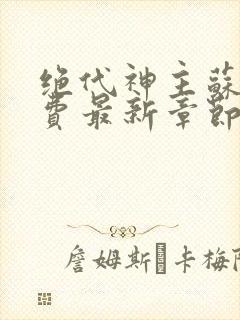 绝代神主蘇
費最新章節
詹姆斯·卡梅隆